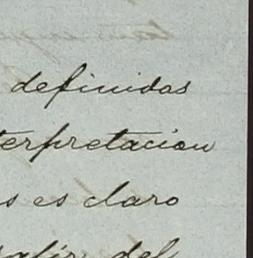 definidas
terpretacion
s es claro
del